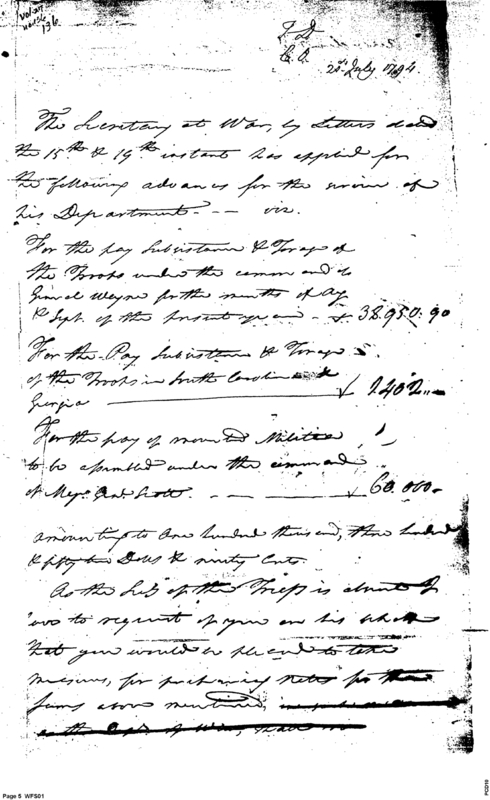 136
T D
C. O.
21st July 1794
The Secretary at War, by Letters dated
the 15th & 19th instant has applied for
the following advances for the service of
his Department - - - viz.
For the pay Subsistence & Forage of
the Troops under the command of
General Wayne for the months of Aug
& Sept. of the present year - 38.950.90
For the Pay Subsistence & Forage
of the Troops in South Carolina &
Georgia 2402
For the pay of mounted Militia
to be assembled under the command
of Majr. Genl. Scott - 60.000
amounting to One hundred thousand, three hundred
& fifty two Dolls & ninety Cents.
As the Secy of the Treasy is absent I
have to request of you on his behalf
that you would be pleased to take
measures, for purchasing notes for the
sums above mentioned,
Page 5 WFS01
PCD10